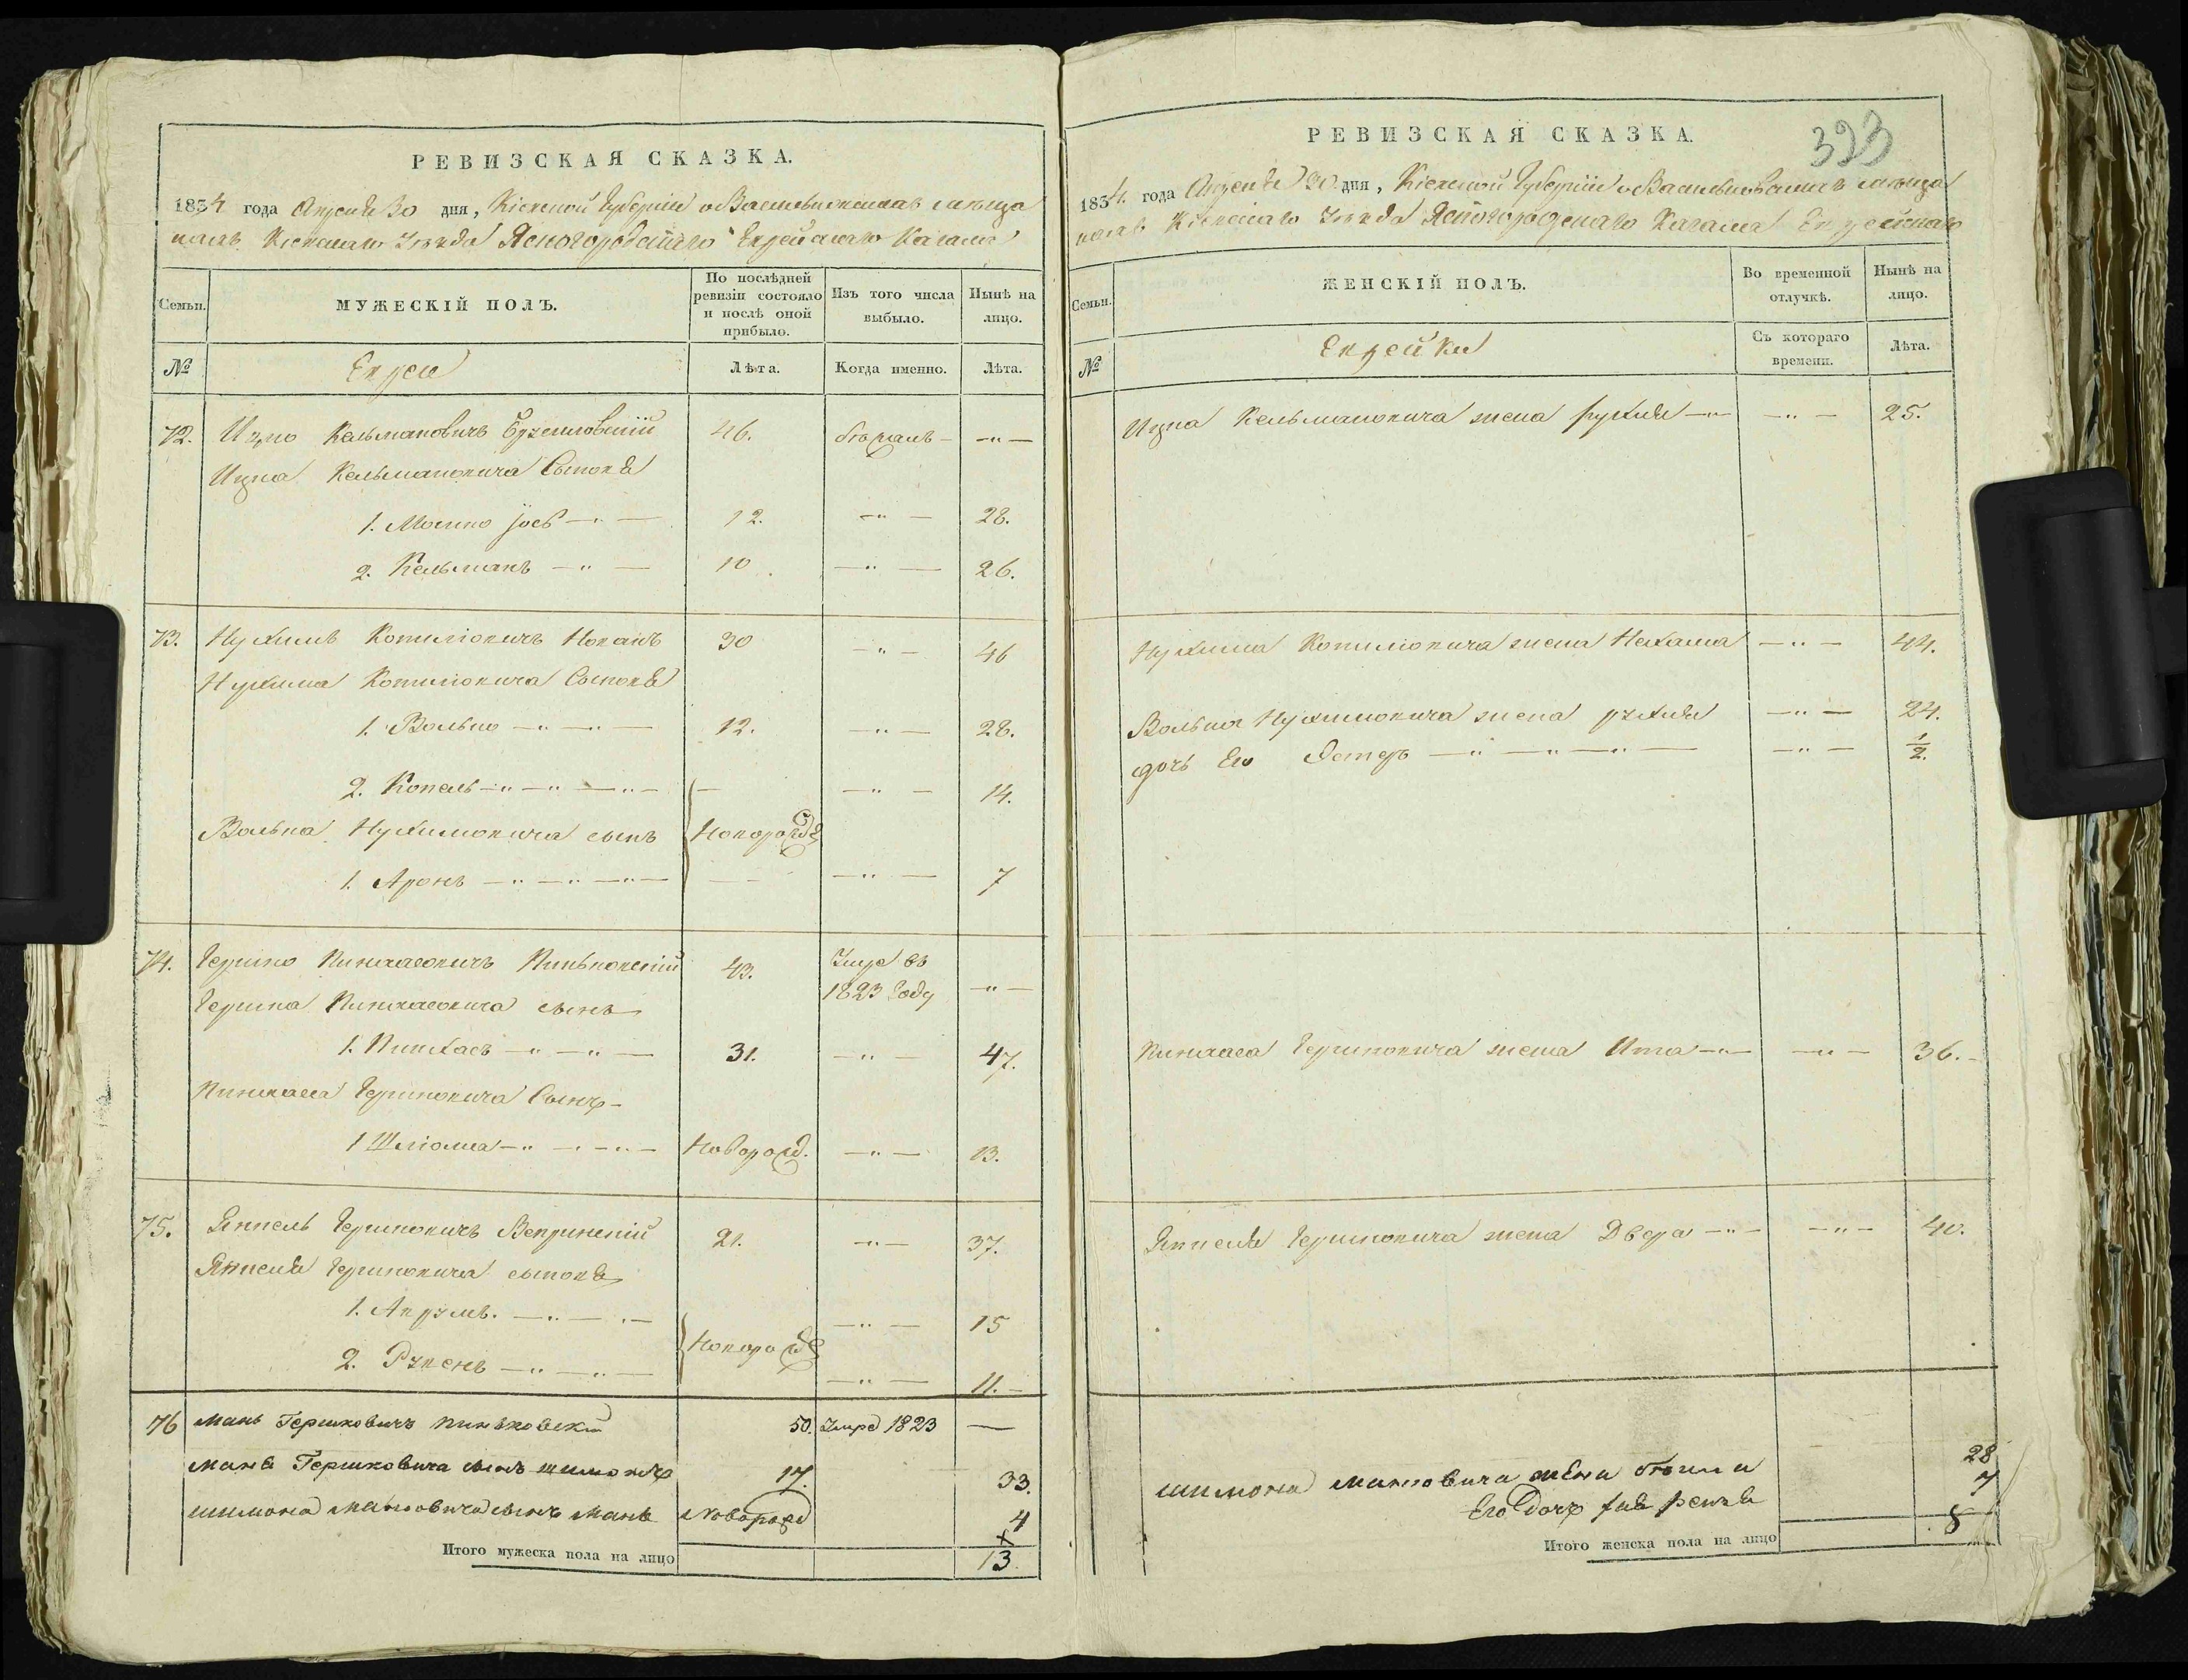 РЕВИЗСКАЯ СКАЗКА.
1834 года Апреля 30 дня, Кіевской Губерніи о Васильковскихъ мѣща
нахъ Кіевскаго уѣзда Ясногородскаго Еврейскаго Кагала
Семьи.
МУЖЕСКІЙ ПОЛЪ.
По послѣдней ревизіи состояло и послѣ оной прибыло.
Изъ того числа выбыло.
Нынѣ на лицо.
№
Евреи
Лѣта.
Когда именно.
Лѣта.
72. Ицко Кельмановичъ 46. — " —
Ицка Кельмановича Сыновья
1. Мошко Іосъ — " — 12. — " — 28.
2. Кельманъ — " — 10 — " — 26.
73. Нухимъ Копиліовичъ 30 — " — 46
Нухима Копиліовича Сыновья
1. Волько — " — " — 12. — " — 28.
2. Копель — " — " — " — — — " — 14.
Волька Нухимовича сынъ Новорожд
1. Аронъ — " — " — " — — — " — 7
74. Гершко Пинхасовичъ Пиньковскій 43. Умре въ 1823 году — " —
Гершка Пинхасовича сынъ
1. Пинхасъ — " — " — 31. — " — 47.
Пинхаса Гершковича Сынъ —
1 Шліома — " — " — Новорожд. — " — 13.
75. Янкель Гершковичъ Вепринскій 21. — " — 37.
Янкеля Гершковича сыновья
1. Аврумъ. — " — " — — " — 15
Новорожд
2. Рувень — " — " — — " — 11. —
76 Мань Гершковичъ Пиньковскій 50. Умре 1823 —
Маня Гершковича сынъ Шимонъ 17. 33.
Шимона Мановича сынъ Мань Новорожд 4
Итого мужеска пола на лицо 13
РЕВИЗСКАЯ СКАЗКА.
323
1834 года Апреля 30 дня, Кіевской Губерніи о Васильковскихъ мѣща
нахъ Кіевскаго уѣзда Ясногородскаго Кагала Еврейскаго
Семьи.
ЖЕНСКІЙ ПОЛЪ.
Во временной отлучкѣ.
Нынѣ на лицо.
№
Еврейки
Съ котораго времени.
Лѣта.
Ицка Кельмановича жена Рухля — " — — " — 25.
Нухима Копиліовича жена Нехама — " — 44.
Волька Нухимовича жена Рухля — " — 24.
дочь Его Эстеръ — " — " — " — — " — ½.
Пинхаса Гершковича жена Ита — " — — " — 36. —
Янкеля Гершковича жена Двера — " — — " — 40.
Шимона Мановича жена 28
Его Дочь 7
Итого женска пола на лицо 8